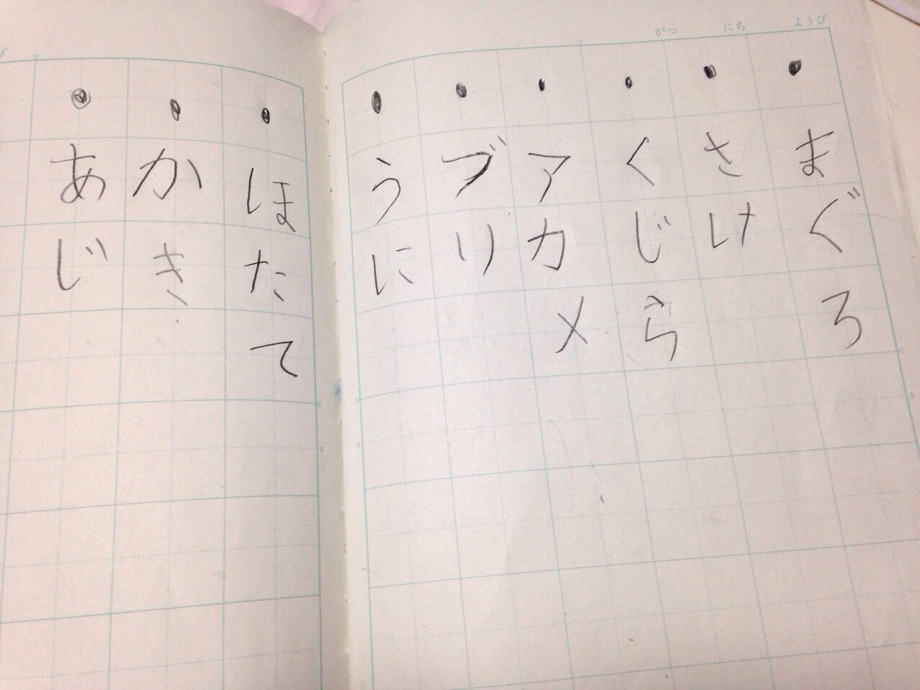 がつ にち ようび
まぐろ
さけ
くじら
アカメ
ブリ
うに
ほたて
かき
あじ